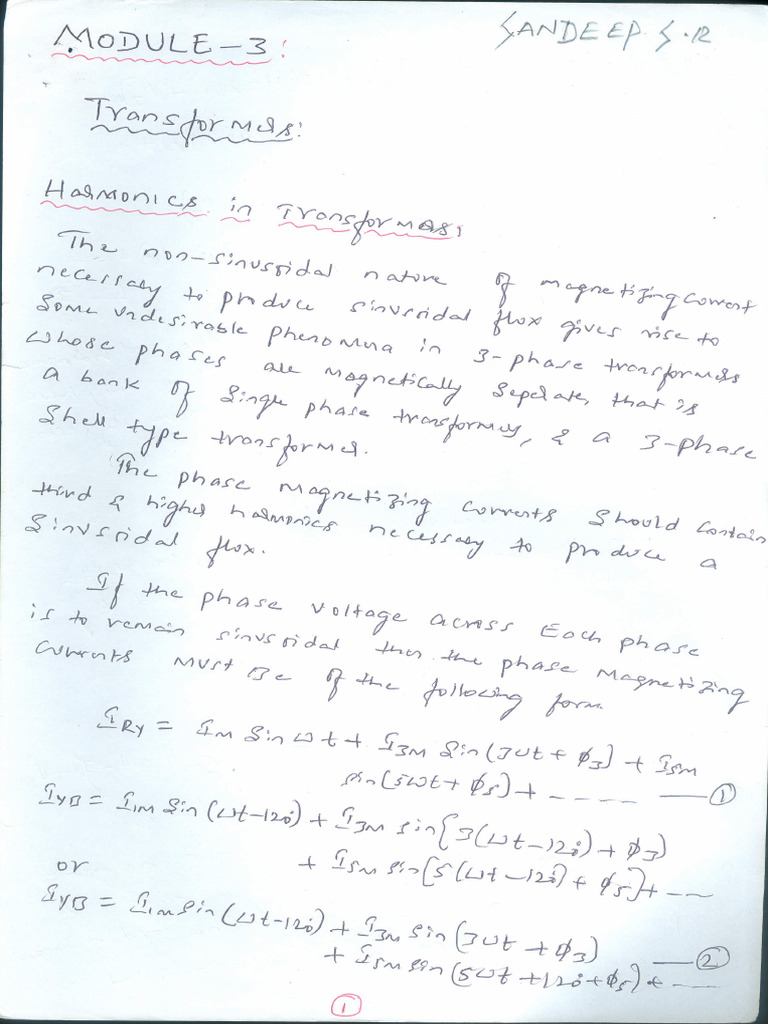 SANDEEP S.R
MODULE-3:
Transformers:
Harmonics in Transformers:
The non-sinusoidal nature of magnetizing current
necessary to produce sinusoidal flux gives rise to
some undesirable phenomena in 3-phase transformers
whose phases are magnetically seperate, that is
a bank of single phase transformers, & a 3-phase
shell type transformer.
The phase magnetizing currents should contain
third & higher harmonics necessary to produce a
sinusoidal flux.
If the phase voltage across Each phase
is to remain sinusoidal then the phase Magnetizing
currents must be of the following form
I_RY = I_M sin ωt + I_3M sin(3ωt + ϕ_3) + I_5M
sin(5ωt + ϕ_5) + ---- —— ①
I_YB = I_1M sin(ωt-120°) + I_3M sin{3(ωt-120°) + ϕ_3)
+ I_5M sin[5(ωt-120°) + ϕ_5) + ---
or
I_YB = I_1M sin(ωt-120°) + I_3M sin(3ωt + ϕ_3)
+ I_5M sin(5ωt + 120° + ϕ_5) + --- —— ②
①